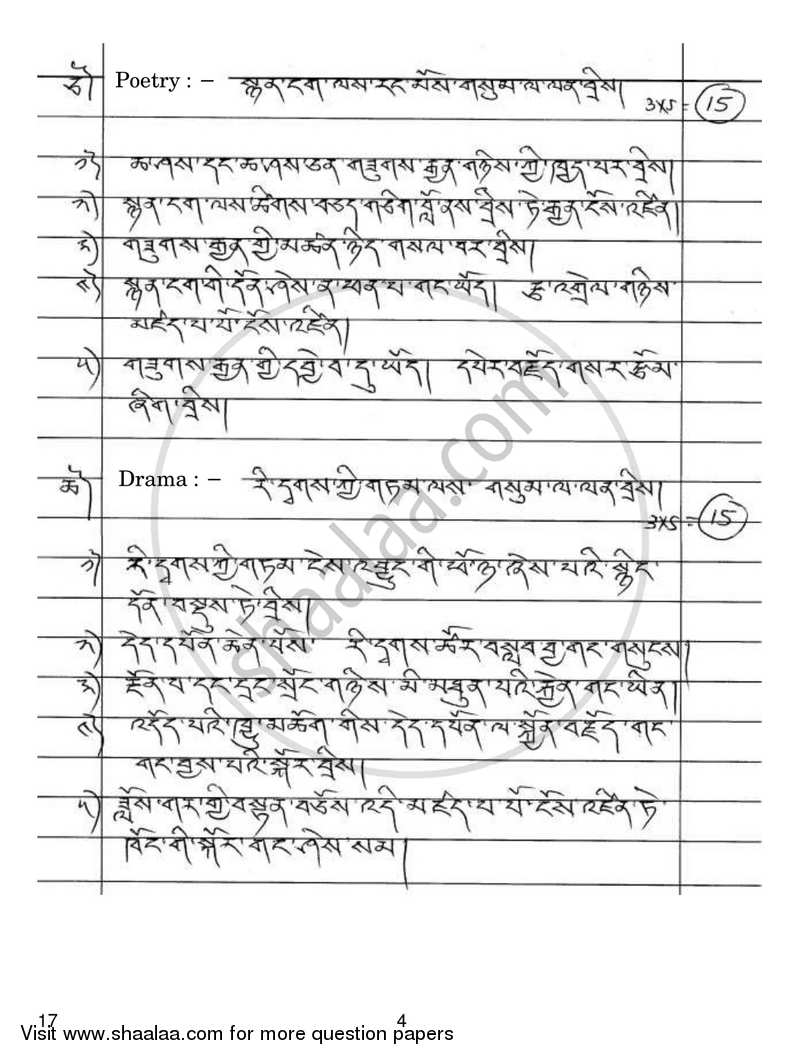 ཅོ། Poetry : – སྙན་ངག་ལས་རང་མོས་གསུམ་ལ་ལན་བྲིས།
3×5 = 15
ཀ༽ ཆ་ཤས་དང་ཆ་ཤས་ཅན་གཟུགས་རྒྱན་གཉིས་ཀྱི་ཁྱད་པར་བྲིས།
ཁ༽ སྙན་ངག་ལས་ཚིགས་བཅད་གཅིག་བློ་ནས་བྲིས་ཏེ་རྒྱན་ངོས་འཛིན།
ག༽ གཟུགས་རྒྱན་གྱི་མཚན་ཉིད་གསལ་བར་བྲིས།
སྙན་ངག་གི་དོན་ཤེས་ན་ཕན་པ་གང་ཡོད། རྩ་འགྲེལ་གཉིས་
མཛད་པ་པོ་ངོས་འཛིན།
གཟུགས་རྒྱན་གྱི་དབྱེ་བ་དུ་ཡོད། དཔེར་བརྗོད་གསར་རྩོམ་
ཞིག་བྲིས།
ཆོ། Drama : – རི་དྭགས་ཀྱི་གཏམ་ལས་ གསུམ་ལ་ལན་བྲིས།
3×5 = 15
ཀ༽ རི་དྭགས་ཀྱི་གཏམ་ངེས་འབྱུང་གི་ཕོ་ཉ་ཞེས་པའི་སྙིང་
དོན་བསྡུས་ཏེ་བྲིས།
ཁ༽ དེད་དཔོན་ཆེན་པོས་ རི་དྭགས་ཚོར་བསླབ་བྱ་གང་གསུངས།
ག༽ རྔོན་པ་དང་དྲང་སྲོང་གཉིས་མི་མཐུན་པའི་རྒྱེན་གང་ཡིན།
འདོད་པའི་ཁྱུ་མཆོག་གིས་དེད་དཔོན་ལ་སྐྱོན་བརྗོད་གང་
གང་བྱས་པའི་སྐོར་བྲིས།
ཟློས་གར་གྱི་བསྟན་བཅོས་འདི་མཛད་པ་པོ་ངོས་འཛིན་ཏེ་
ཁོང་གི་སྐོར་གང་ཤེས་སམ།
17
4
Visit www.shaalaa.com for more question papers
shaalaa.com